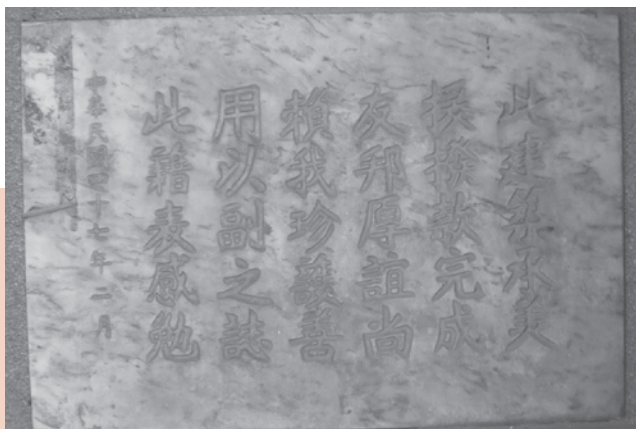 此建築承美
援撥款完成
友邦厚誼尚
賴我珍護善
用以副之誌
此藉表感勉
中華民國四十七年二月